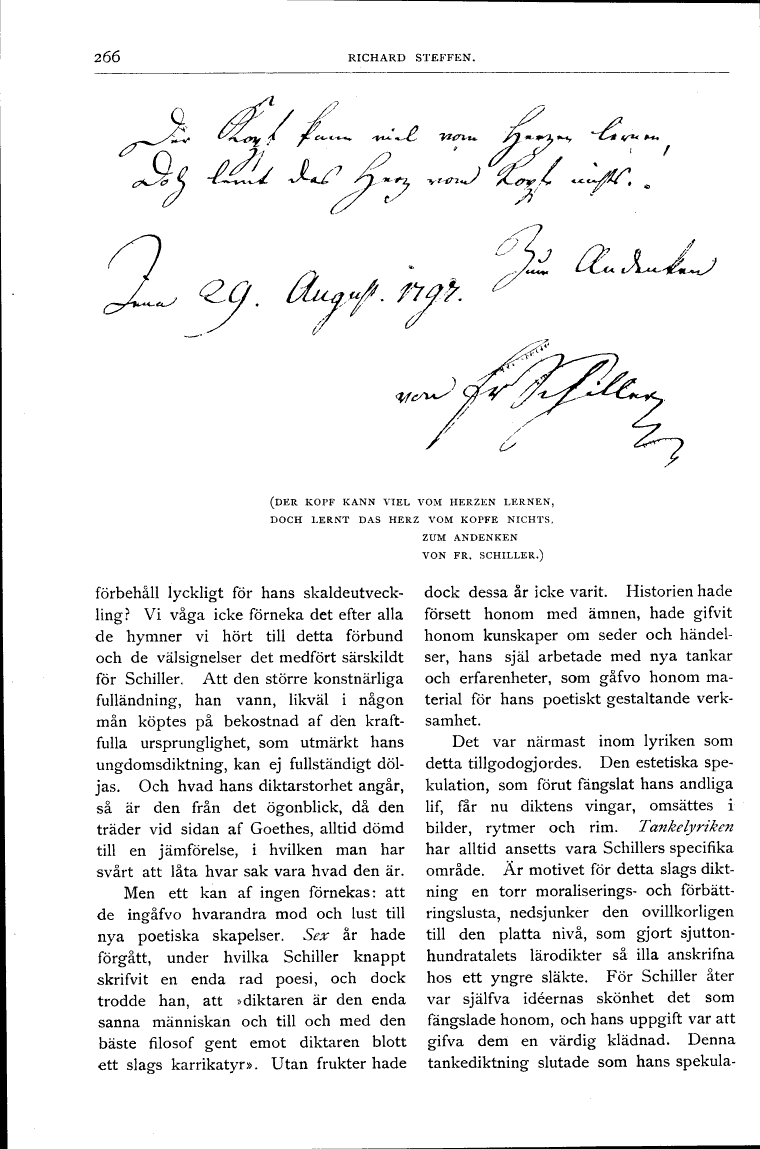 266
RICHARD STEFFEN.
Der Kopf kann viel vom Herzen lernen,
Doch lernt das Herz vom Kopfe nichts.
Zum Andenken
Jena 29. August. 1797.
von Fr Schiller
(DER KOPF KANN VIEL VOM HERZEN LERNEN,
DOCH LERNT DAS HERZ VOM KOPFE NICHTS.
ZUM ANDENKEN
VON FR. SCHILLER.)
förbehåll lyckligt för hans skaldeutveck-
ling? Vi våga icke förneka det efter alla
de hymner vi hört till detta förbund
och de välsignelser det medfört särskildt
för Schiller. Att den större konstnärliga
fulländning, han vann, likväl i någon
mån köptes på bekostnad af den kraft-
fulla ursprunglighet, som utmärkt hans
ungdomsdiktning, kan ej fullständigt döl-
jas. Och hvad hans diktarstorhet angår,
så är den från det ögonblick, då den
träder vid sidan af Goethes, alltid dömd
till en jämförelse, i hvilken man har
svårt att låta hvar sak vara hvad den är.
Men ett kan af ingen förnekas: att
de ingåfvo hvarandra mod och lust till
nya poetiska skapelser. Sex år hade
förgått, under hvilka Schiller knappt
skrifvit en enda rad poesi, och dock
trodde han, att »diktaren är den enda
sanna människan och till och med den
bäste filosof gent emot diktaren blott
ett slags karrikatyr». Utan frukter hade
dock dessa år icke varit. Historien hade
försett honom med ämnen, hade gifvit
honom kunskaper om seder och händel-
ser, hans själ arbetade med nya tankar
och erfarenheter, som gåfvo honom ma-
terial för hans poetiskt gestaltande verk-
samhet.
Det var närmast inom lyriken som
detta tillgodogjordes. Den estetiska spe-
kulation, som förut fängslat hans andliga
lif, får nu diktens vingar, omsättes i
bilder, rytmer och rim. Tankelyriken
har alltid ansetts vara Schillers specifika
område. Är motivet för detta slags dikt-
ning en torr moraliserings- och förbätt-
ringslusta, nedsjunker den ovillkorligen
till den platta nivå, som gjort sjutton-
hundratalets lärodikter så illa anskrifna
hos ett yngre släkte. För Schiller åter
var själfva idéernas skönhet det som
fängslade honom, och hans uppgift var att
gifva dem en värdig klädnad. Denna
tankediktning slutade som hans spekula-